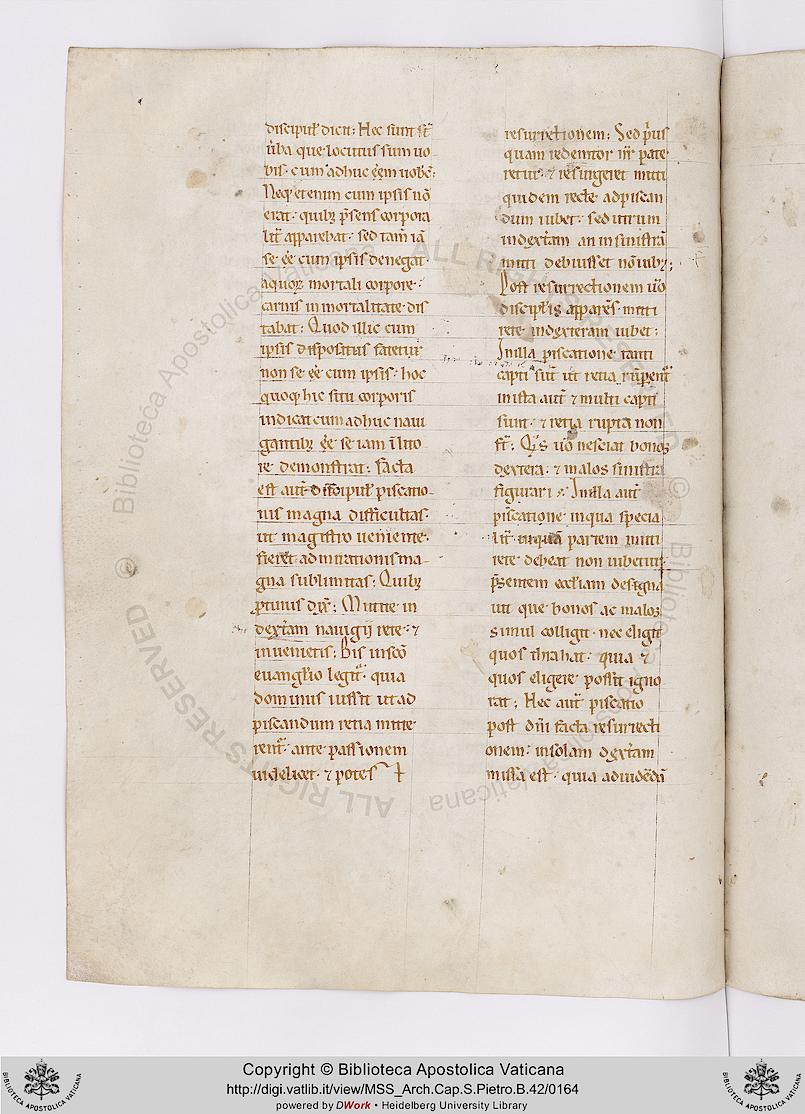 discipul' dicit; Hec sunt
u̅ba que locutus sum uo
bis· cum adhuc e̅em uobc̅;
Neq; etenim cum ipsis no̅
erat· quib; p̅sens corpora
lit̅ apparebat· sed tam̅ ia̅
se e̅e cum ipsis denegat·
a quor; mortali corpore·
carnis inmortalitate dis
tabat; Quod illic cum
ipsis dispositus fatetur
non se e̅e cum ipsis; hoc
quoq; hic situ corporis
indicat cum adhuc naui
gantib; e̅e se iam i̅ lito
re demonstrat; facta
est aut̅ discipul' piscatio
nis magna difficultas·
ut magistro ueniente·
fieret admirationis ma-
gna sublimitas; Quib;
protinus dix̅; Mittite in
dext̅am nauigii rete· ⁊
inuenietis; Bis in sc̅o
euangl'io legit̅· quia
dominus iussit ut ad
piscandum retia mitte
rent̅· ante passionem
uidelicet· ⁊ post
resurrectionem; Sed p̅us
quam redemtor nr̅ pate
retur· ⁊ resurgeret mitti
quidem rete ad piscan
dum iubet· sed utrum
in dext̅am an in sinistra̅
mitti debuisset no̅ iub;;
Post resurrectionem u̅o
discipl'is appare̅s mitti
rete in dexteram iubet;
In illa piscatione tanti
capti su̅t ut retia ru̅perent̅
in ista aut̅ ⁊ multi capti
sunt· ⁊ retia rupta non
st̅; Q̅s uo nesciat bonos
dextera· ⁊ malos sinistra
figurari; In illa aut̅
piscatione in qua specia
lit̅ in qua̅ partem mitti
rete debeat non iubetur·
p̅sentem eccl'iam designa
uit que bonos ac malos
simul colligit· nec eligit
quos thrahat· quia ⁊
quos eligere possit igno
rat; Hec aut̅ piscatio
post dn̅i facta resurrecti
onem· in solam dext̅am
missa est· quia ad uide̅du̅
ALL RIGHTS RESERVED © Biblioteca Apostolica Vaticana
ALL RIGHTS RESERVED © Biblioteca Apostolica Vaticana
BIBLIOTECA APOSTOLICA VATICANA
Copyright © Biblioteca Apostolica Vaticana
http://digi.vatlib.it/view/MSS_Arch.Cap.S.Pietro.B.42/0164
powered by DWork • Heidelberg University Library
BIBLIOTECA APOSTOLICA VATICANA